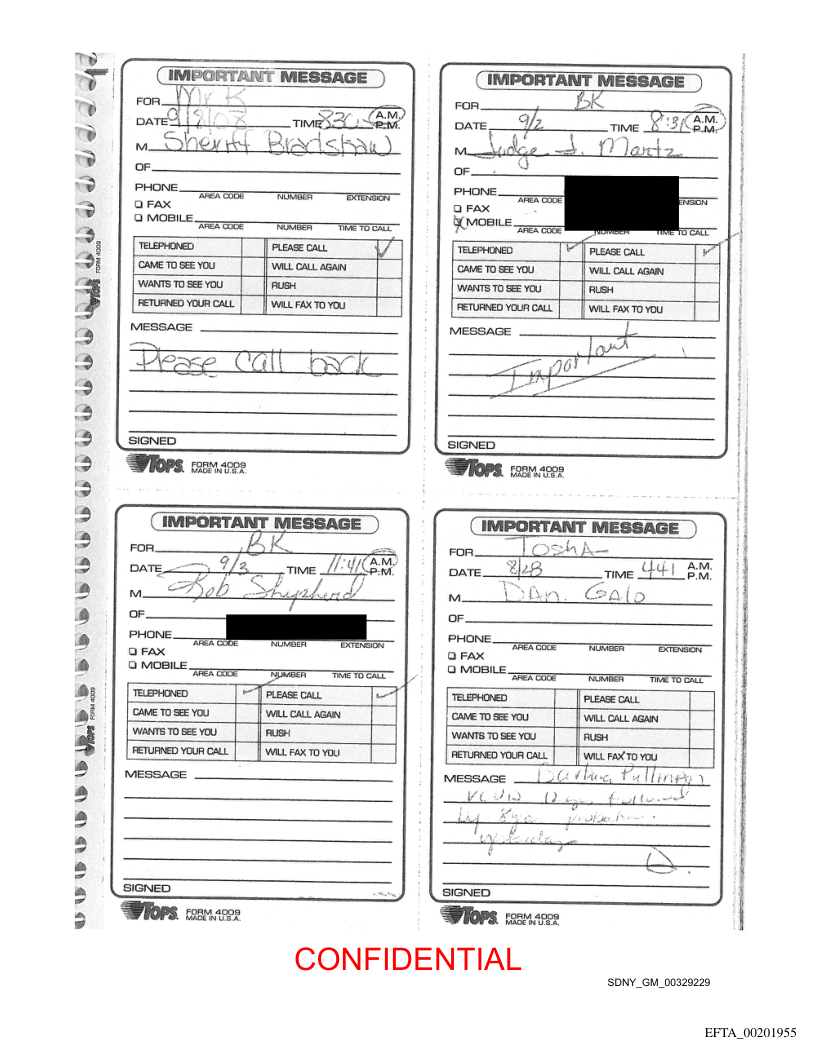 IMPORTANT MESSAGE
FOR Mr. K
DATE 9/3/08 TIME 830 A.M.
P.M.
M Sheriff Bradshaw
OF
PHONE
AREA CODE NUMBER EXTENSION
FAX
MOBILE
AREA CODE NUMBER TIME TO CALL
TELEPHONED PLEASE CALL ✓
CAME TO SEE YOU WILL CALL AGAIN
WANTS TO SEE YOU RUSH
RETURNED YOUR CALL WILL FAX TO YOU
MESSAGE
Please call back
SIGNED
TOPS FORM 4009
MADE IN U.S.A.
TOPS FORM 4009
IMPORTANT MESSAGE
FOR BK
DATE 9/2 TIME 8:31 A.M.
P.M.
M Judge J. Martz
OF
PHONE
AREA CODE ENSION
FAX
MOBILE
AREA CODE NUMBER TIME TO CALL
TELEPHONED ✓ PLEASE CALL ✓
CAME TO SEE YOU WILL CALL AGAIN
WANTS TO SEE YOU RUSH
RETURNED YOUR CALL WILL FAX TO YOU
MESSAGE
Important
SIGNED
TOPS FORM 4009
MADE IN U.S.A.
IMPORTANT MESSAGE
FOR BK
DATE 9/3 TIME 11:41 A.M.
P.M.
M Bob Shepherd
OF
PHONE
AREA CODE NUMBER EXTENSION
FAX
MOBILE
AREA CODE NUMBER TIME TO CALL
TELEPHONED ✓ PLEASE CALL ✓
CAME TO SEE YOU WILL CALL AGAIN
WANTS TO SEE YOU RUSH
RETURNED YOUR CALL WILL FAX TO YOU
MESSAGE
SIGNED
TOPS FORM 4009
MADE IN U.S.A.
TOPS FORM 4009
IMPORTANT MESSAGE
FOR Tosha
DATE 8/28 TIME 441 A.M.
P.M.
M Dan. Galo
OF
PHONE
AREA CODE NUMBER EXTENSION
FAX
MOBILE
AREA CODE NUMBER TIME TO CALL
TELEPHONED PLEASE CALL
CAME TO SEE YOU WILL CALL AGAIN
WANTS TO SEE YOU RUSH
RETURNED YOUR CALL WILL FAX TO YOU
MESSAGE
12 yrs followed
by 8 yrs probation.
yesterday
SIGNED
TOPS FORM 4009
MADE IN U.S.A.
CONFIDENTIAL
SDNY_GM_00329229
EFTA_00201955